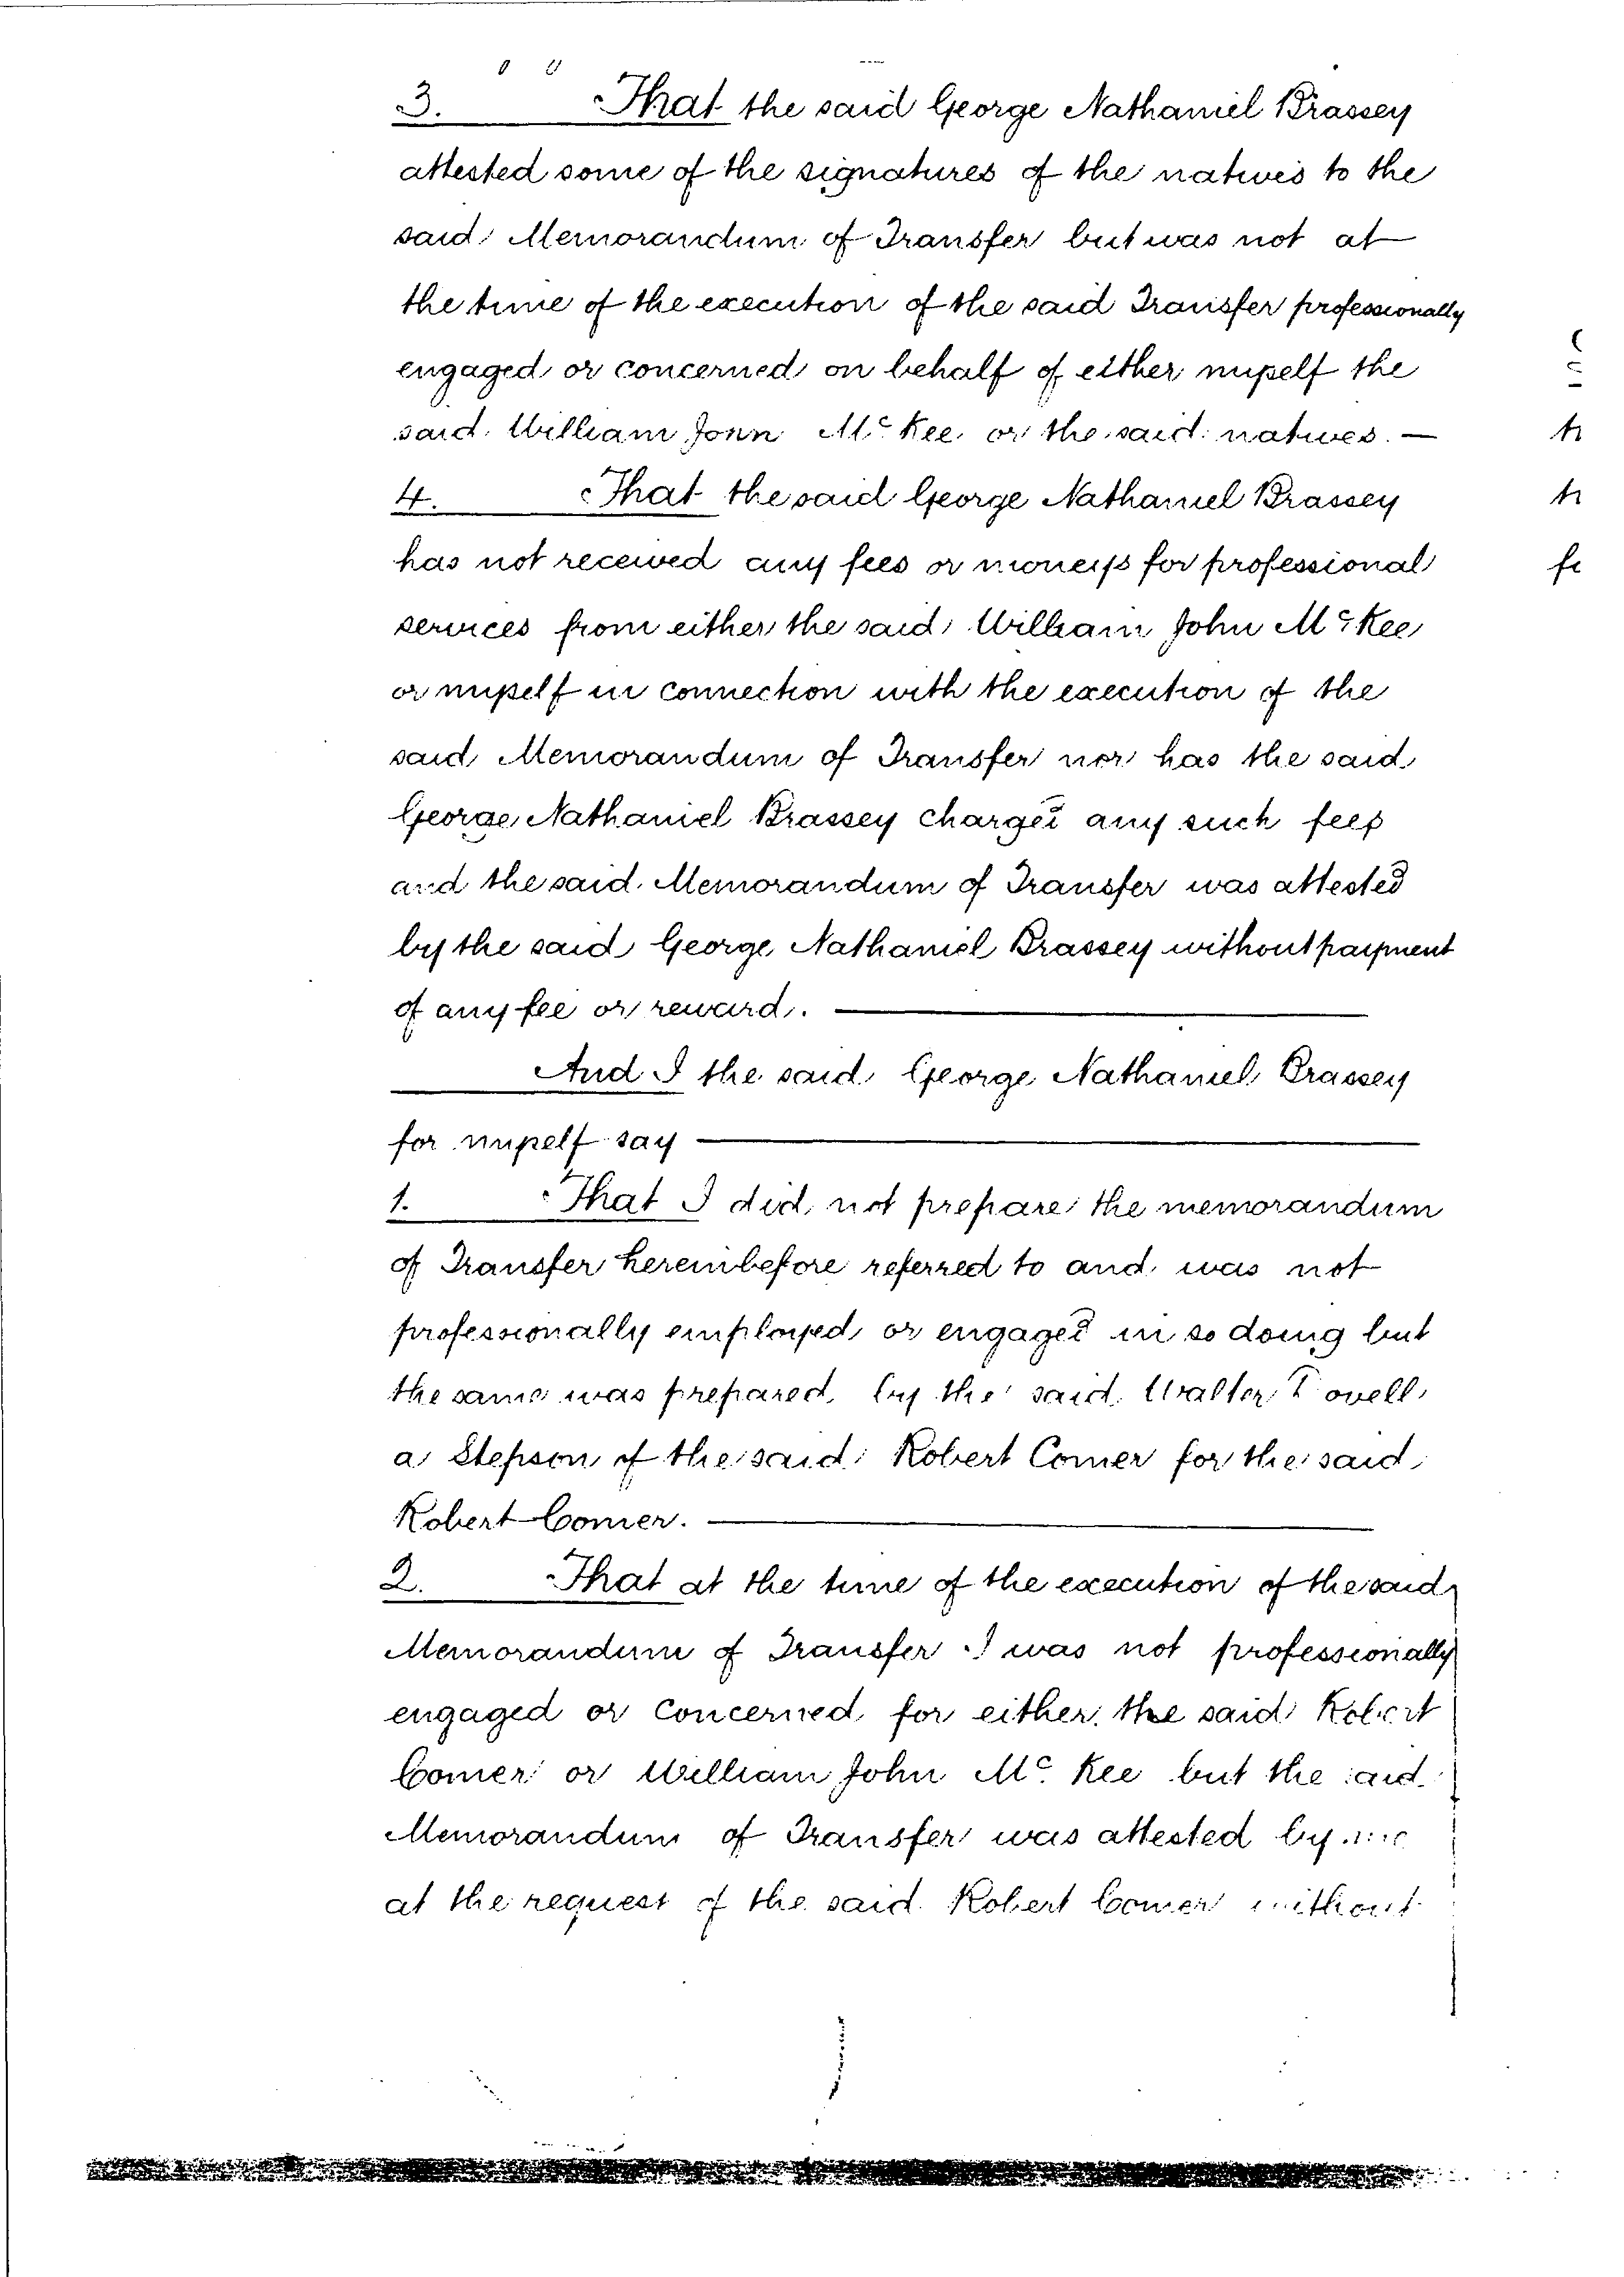 3. That the said George Nathaniel Brassey
attested some of the signatures of the natives to the
said Memorandum of Transfer but was not at
the time of the execution of the said Transfer professionally
engaged or concerned on behalf of either myself the
said William John Mc Kee or the said natives. —
4. That the said George Nathaniel Brassey
has not received any fees or moneys for professional
services from either the said William John Mc Kee
or myself in connection with the execution of the
said Memorandum of Transfer nor has the said
George Nathaniel Brassey charged any such fees
and the said Memorandum of Transfer was attested
by the said George Nathaniel Brassey without payment
of any fee or reward. —
And I the said George Nathaniel Brassey
for myself say —
1. That I did not prepare the memorandum
of Transfer hereinbefore referred to and was not
professionally employed or engaged in so doing but
the same was prepared by the said Walter
a Stepson of the said Robert Comer for the said
Robert Comer. —
2. That at the time of the execution of the said
Memorandum of Transfer I was not professionally
engaged or concerned for either the said Robert
Comer or William John Mc. Kee but the said
Memorandum of Transfer was attested by me
at the request of the said Robert Comer without